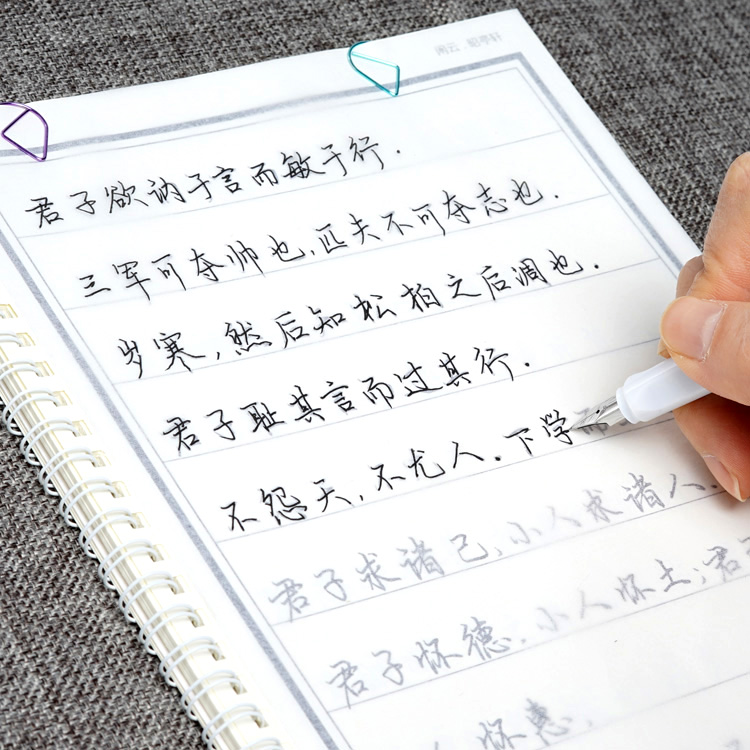 君子欲讷于言而敏于行.
三军可夺帅也,匹夫不可夺志也.
岁寒,然后知松柏之后凋也.
君子耻其言而过其行.
不怨天,不尤人.下学
君子求诸己,小人求诸人.
君子怀德,小人怀土;君
怀惠,